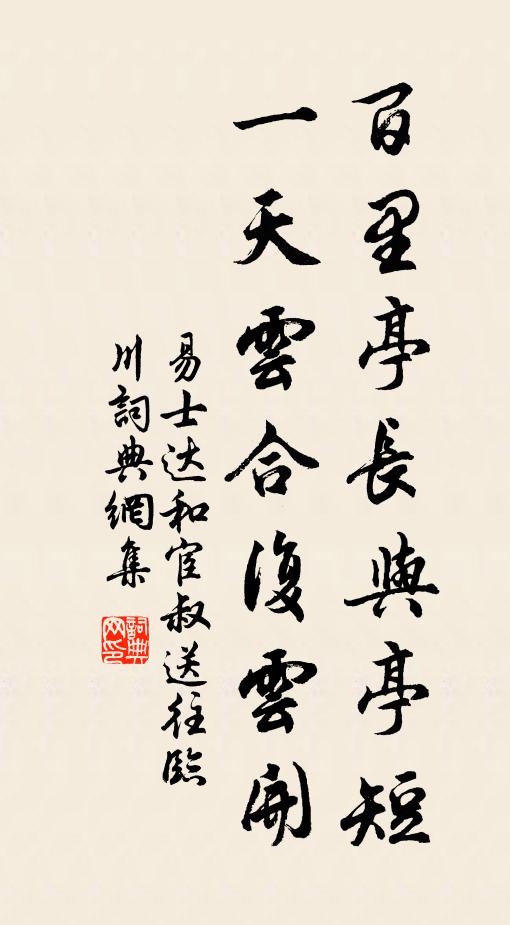 百里亭長與亭短
一天雲合復雲開
易士达和宦叔送往臨
川詞典網集
詞典网印